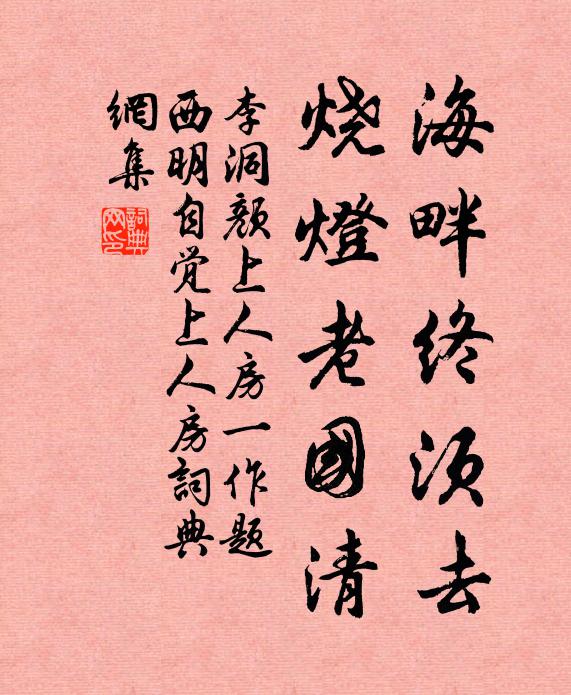 海畔终须去
烧燈老國清
李洞颜上人房一作题
西明自觉上人房詞典
網集
詞典
网印